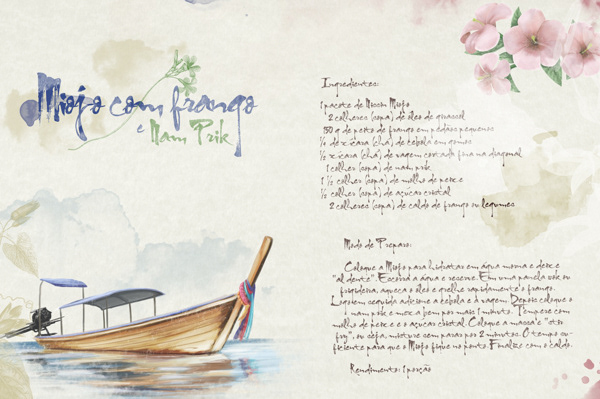 Miojo com frango
e Nam Prik
Ingredientes:
1 pacote de Nissin Miojo
2 colheres (sopa) de óleo de girassol
150 g de peito de frango em pedaços pequenos
½ de xícara (chá) de cebola em gomos
½ xícara (chá) de vagem cortada fina na diagonal
1 colher (sopa) de nam prik
1 ½ colher (sopa) de molho de peixe
½ colher (sopa) de açúcar cristal
2 colheres (sopa) de caldo de frango ou legumes
Modo de Preparo:
Coloque a Miojo para hidratar em água morna e deixe
"al dente". Escorra a água e reserve. Em uma panela wok ou
frigideira, aqueça o óleo e grelhe rapidamente o frango.
Logo em seguida adicione a cebola e a vagem. Depois coloque o
nam prik e mexa bem por mais 1 minuto. Tempere com
molho de peixe e o açúcar cristal. Coloque a massa e "stir
fry", ou seja, misture sem parar por 2 minutos. O tempo su-
ficiente para que o Miojo fique no ponto. Finalize com o caldo.
Rendimento: 1 porção